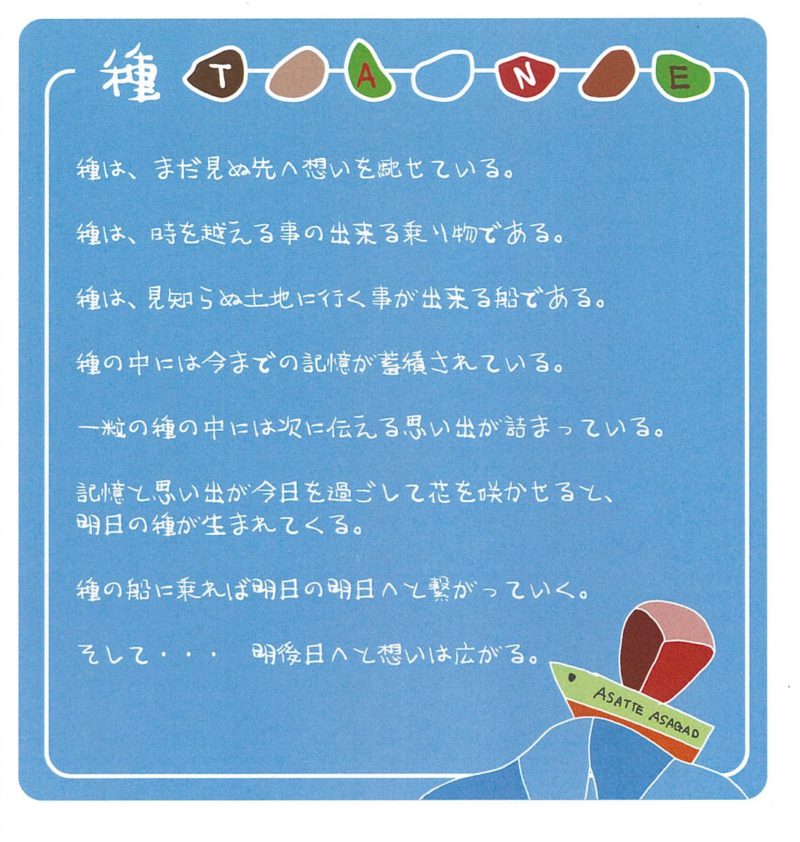 種 TANE
種は、まだ見ぬ先へ想いを馳せている。
種は、時を越える事の出来る乗り物である。
種は、見知らぬ土地に行く事が出来る船である。
種の中には今までの記憶が蓄積されている。
一粒の種の中には次に伝える思い出が詰まっている。
記憶と思い出が今日を過ごして花を咲かせると、
明日の種が生まれてくる。
種の船に乗れば明日の明日へと繋がっていく。
そして・・・　明後日へと想いは広がる。
ASATTE ASAGAO